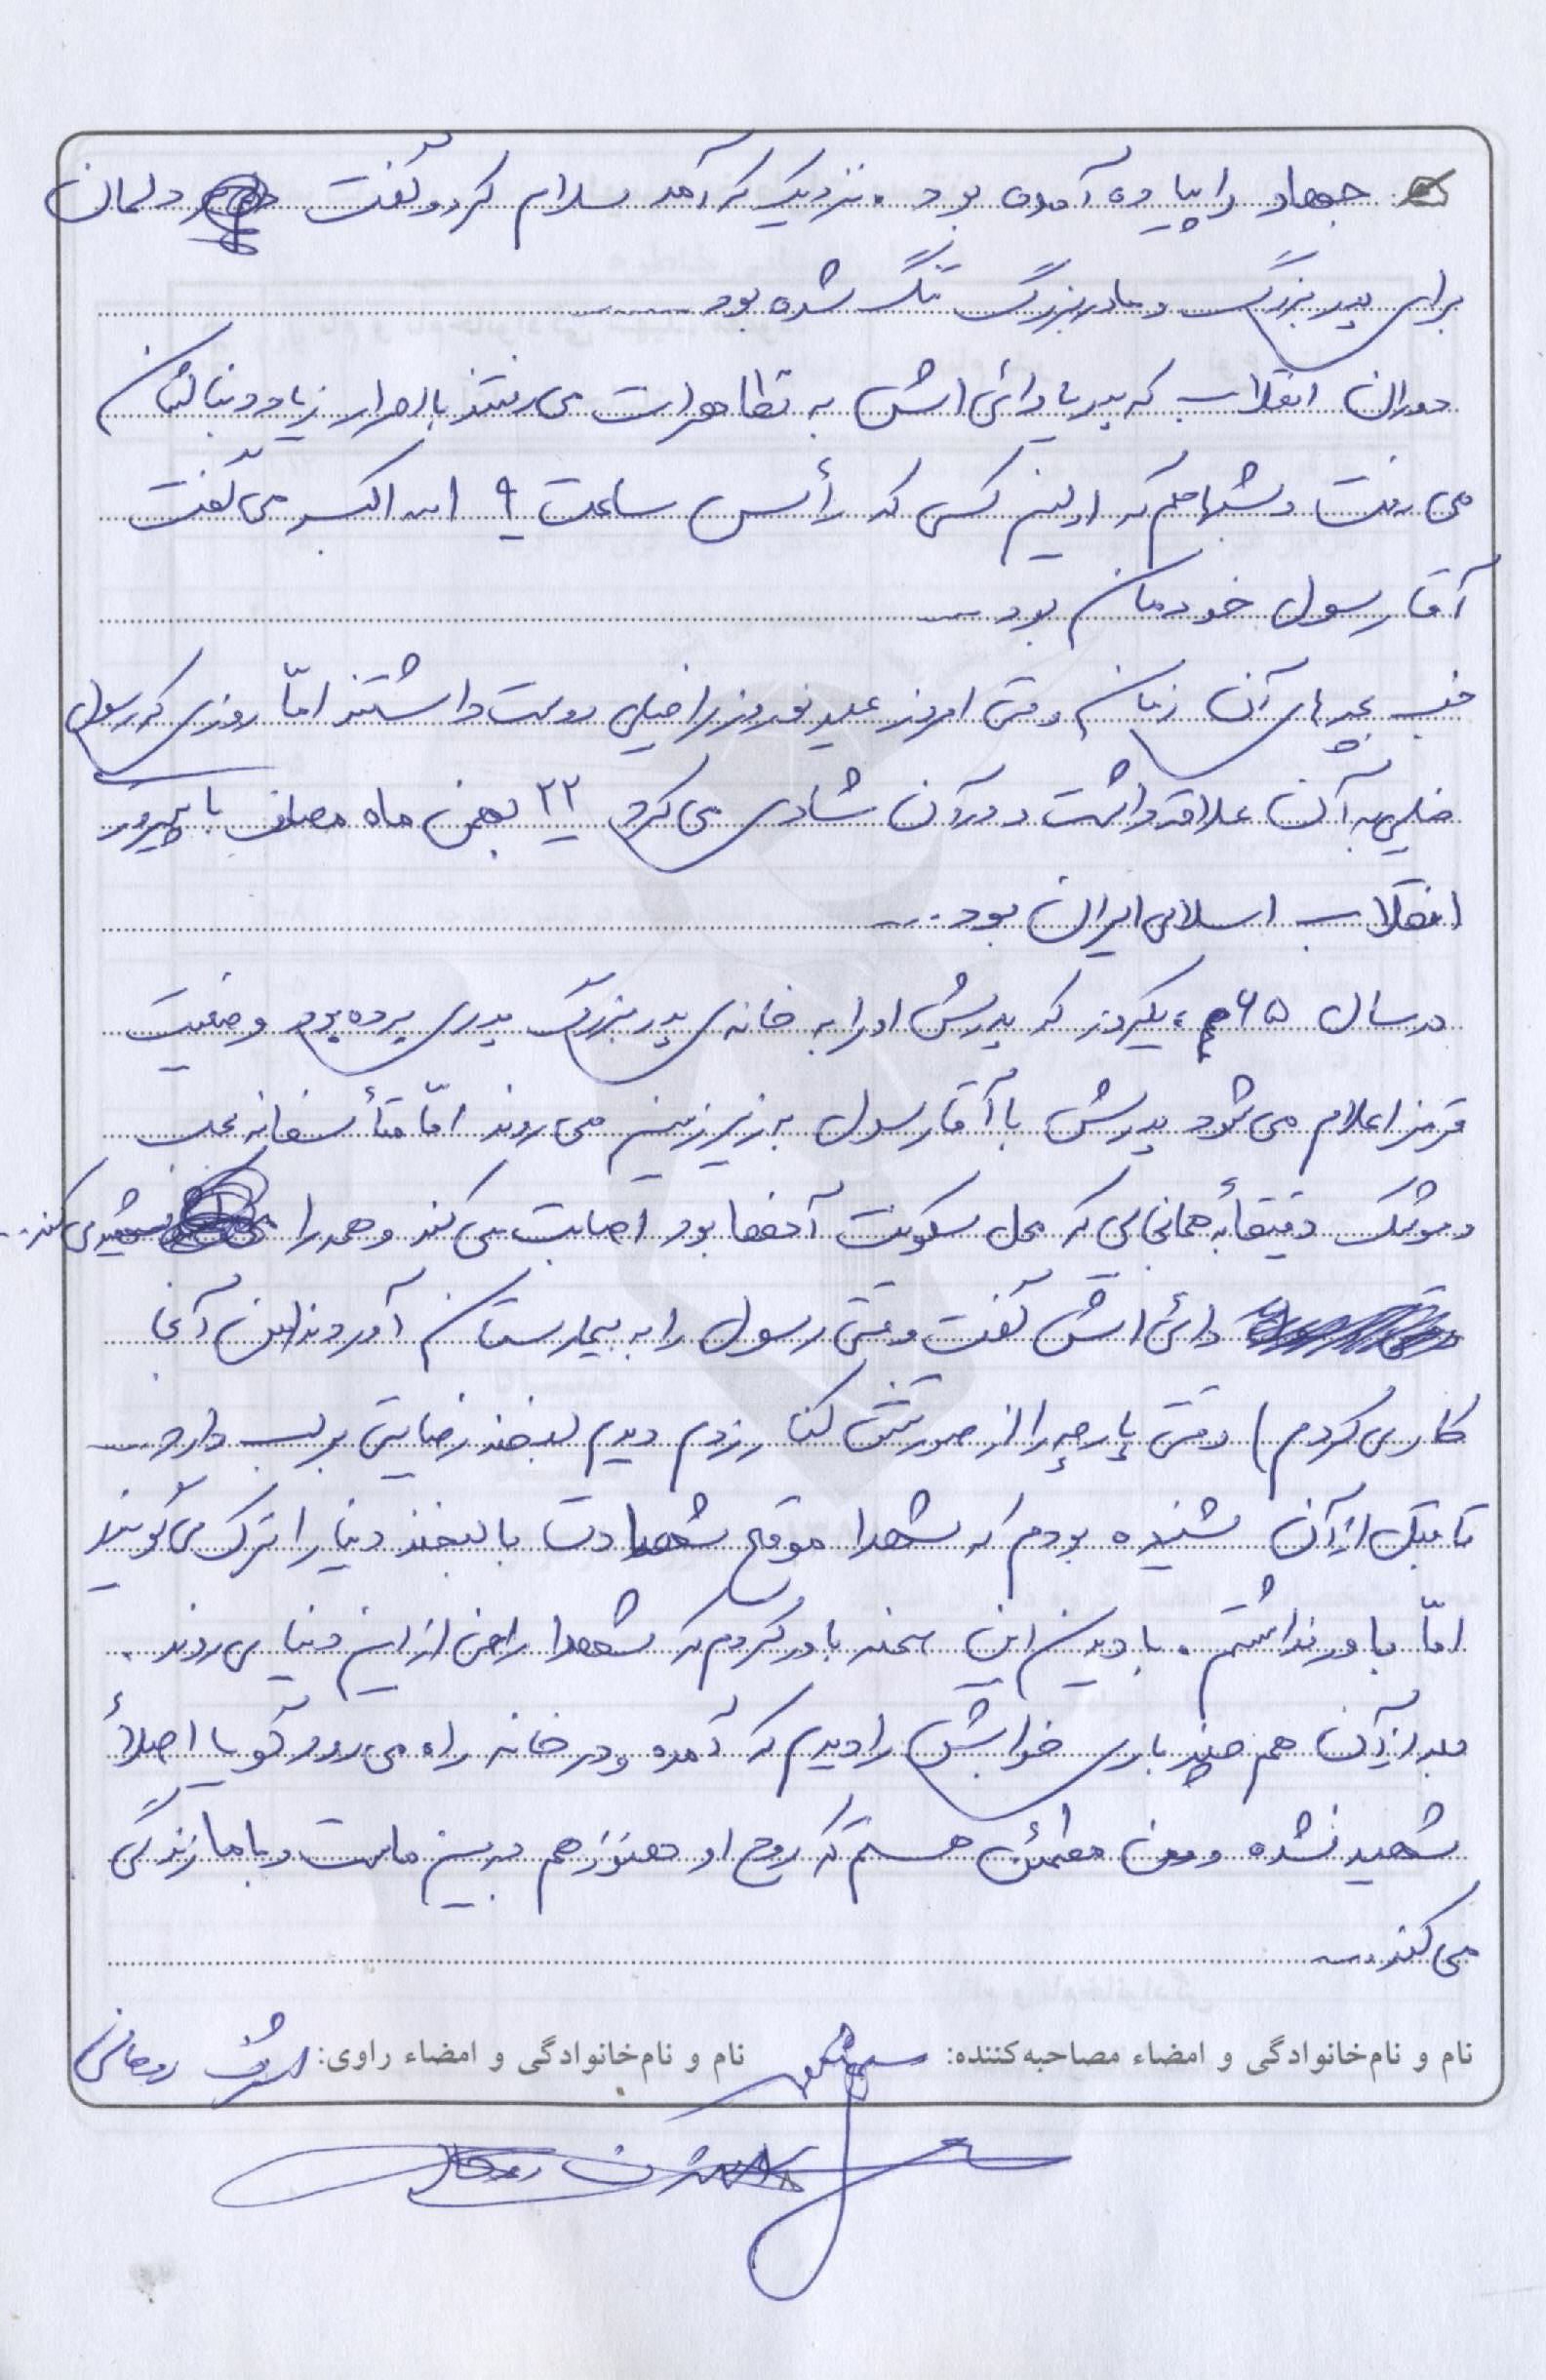 جهاد را پیاده آمده بود. نزدیک که آمد سلام کرد و گفت دلمان
برای پدربزرگ و مادربزرگ تنگ شده بود ...
دوران انقلاب که پدر یا دائی اش به تظاهرات می رفتند با اصرار زیاد دنبالشان
می رفت و شبها هم که اولین کسی که رأس ساعت ۹ الله اکبر می گفت
آقا رسول خودمان بود ...
خب بچه های آن زمان وقتی امروز عید نوروز را خیلی دوست داشتند امّا روزی که رسول
خیلی به آن علاقه داشت و در آن شادی می کرد ۲۲ بهمن ماه مصادف با پیروزی
انقلاب اسلامی ایران بود ...
در سال ۶۵، یکروز که پدرش او را به خانه ی پدربزرگ پدری برده بود وضعیت
قرمز اعلام می شود پدرش با آقا رسول به زیرزمین می روند امّا متأسفانه بمب
و موشک دقیقاً به همانجایی که محل سکونت آنها بود اصابت می کند و همه را شهید می کند ...
دائی اش گفت وقتی رسول را به بیمارستان آوردند (من آنجا
کار می کردم) وقتی پارچه را از صورتش کنار زدم دیدم لبخند رضایتی بر لب دارد ...
تا قبل از آن شنیده بودم که شهدا موقع شهادت با لبخند دنیا را ترک می گویند
امّا باور نداشتم. با دیدن این صحنه باور کردم که شهدا راضی از این دنیا می روند.
بعد از آن هم چند باری خوابش را دیدم که آمده و در خانه راه می رود گویا اصلاً
شهید نشده و من مطمئن هستم که روح او هنوز هم در بین ماست و با ما زندگی
می کند ...
نام و نام‌خانوادگی و امضاء مصاحبه‌کننده: نام و نام‌خانوادگی و امضاء راوی: اشرف روحانی